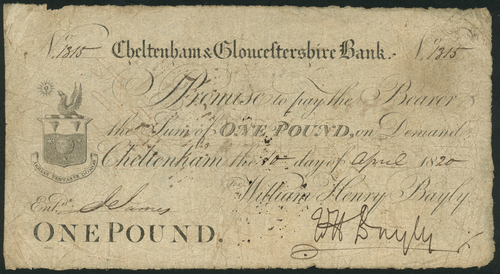 No. 1315 Cheltenham & Gloucestershire Bank. No. 1315
I Promise to pay the Bearer
the Sum of ONE POUND, on Demand
Cheltenham the 10 day of April 1820
For William Henry Bayly
Entd. J. Jones
WH Bayly
ONE POUND.